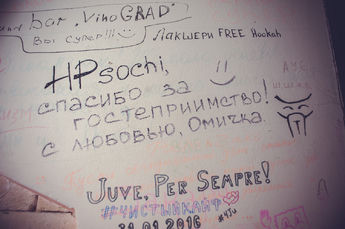 bar "VinoGRAD"
Вы супер!!!
Лакшери FREE Hookah
HPsochi,
спасибо за
гостеприимство!
с любовью, Омичка.
Juve, Per Sempre!
#чистыйкайф
#4Ju
31.01.2016